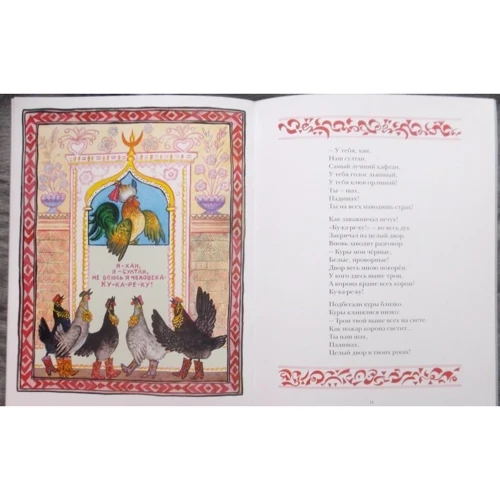 Я - ХАН,
Я - СУЛТАН,
НЕ БОЮСЬ Я ЧЕЛОВЕКА.
КУ-КА-РЕ-КУ!
– У тебя, хан,
Наш султан,
Самый лучший кафтан,
У тебя голос львиный,
У тебя клюв орлиный!
Ты – шах,
Падишах!
Ты на всех наводишь страх!
Как заважничал петух!
«Ку-ка-ре-ку!» – во весь дух
Закричал на целый двор.
Вновь заводит разговор:
– Куры мои чёрные,
Белые, проворные!
Двор весь мною покорён,
У кого здесь выше трон?
А корона краше всех корон!
Ку-ка-ре-ку!
Подбегали куры близко,
Куры кланялися низко:
– Трон твой выше всех на свете,
Как пожар корона светит...
Ты наш шах,
Падишах,
Целый двор в твоих руках!